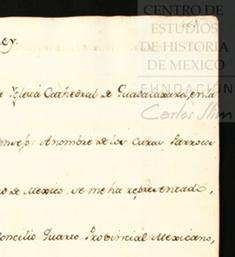 CENTRO DE
ESTUDIOS
DE HISTORIA
DE MEXICO
FUNDACIÓN
Carlos Slim
ey.
Yglesia Cathedral de Guadalaxara, en la
onsejo: A nombre de los Curas Parroco
de Mexico, se me ha representado,
oncilio Quarto Provincial Mexicano,